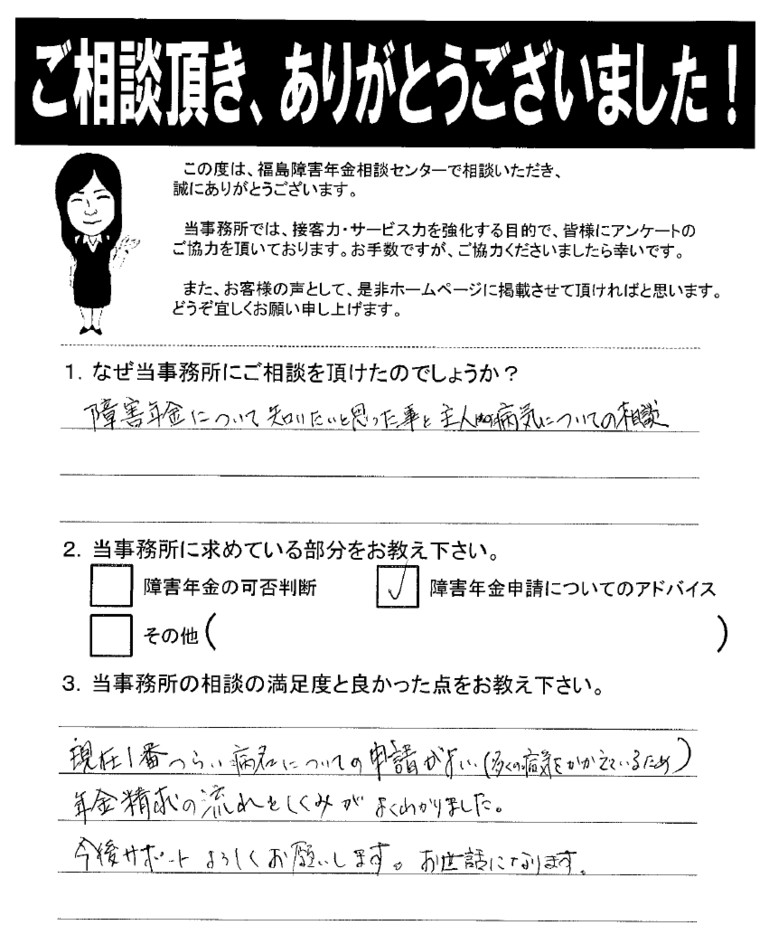 ご相談頂き、ありがとうございました！
この度は、福島障害年金相談センターで相談いただき、
誠にありがとうございます。
当事務所では、接客力・サービス力を強化する目的で、皆様にアンケートの
ご協力を頂いております。お手数ですが、ご協力くださいましたら幸いです。
また、お客様の声として、是非ホームページに掲載させて頂ければと思います。
どうぞ宜しくお願い申し上げます。
1. なぜ当事務所にご相談を頂けたのでしょうか？
障害年金について知りたいと思った事と主人の病気についての相談
2. 当事務所に求めている部分をお教え下さい。
障害年金の可否判断 障害年金申請についてのアドバイス
その他( )
3. 当事務所の相談の満足度と良かった点をお教え下さい。
現在1番つらい病名についての申請がよい(多くの病気をかかえているため)
年金精求の流れとしくみがよくわかりました。
今後サポートよろしくお願いします。お世話になります。